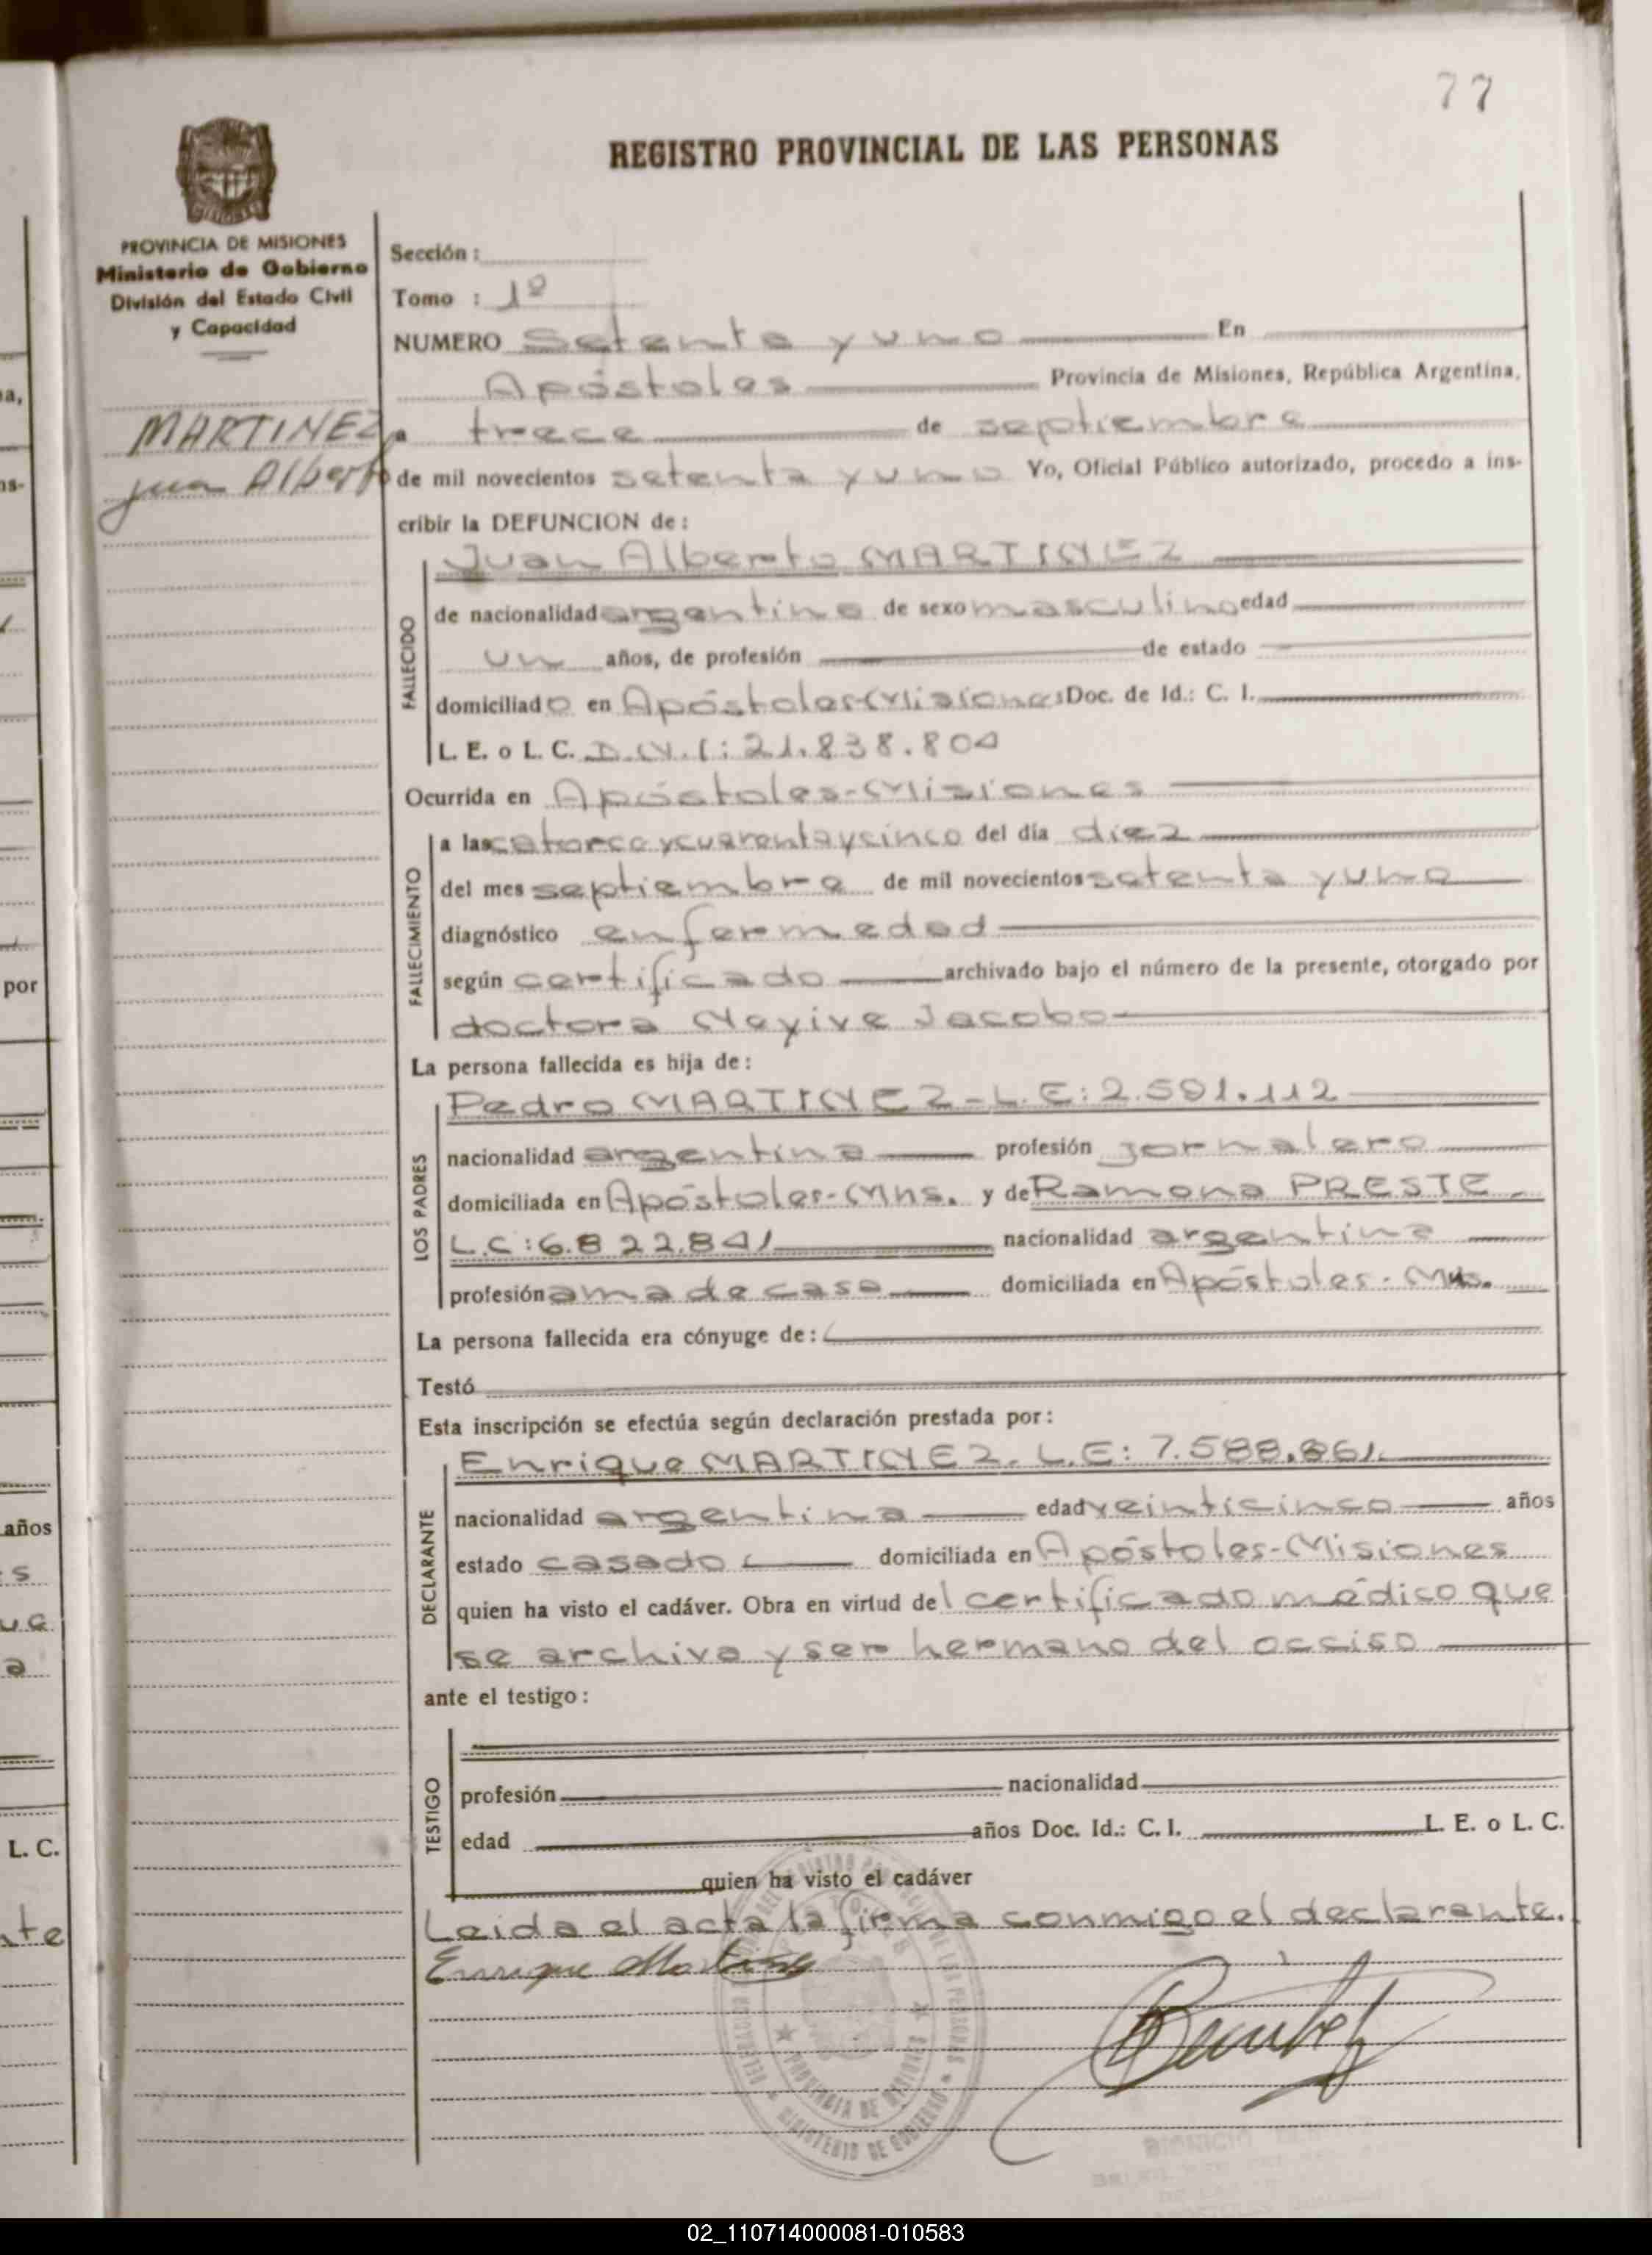 77
REGISTRO PROVINCIAL DE LAS PERSONAS
PROVINCIA DE MISIONES
Ministerio de Gobierno
División del Estado Civil
y Capacidad
MARTINEZ
Juan Alberto
Sección :
Tomo : 1º
NUMERO Setenta y uno En
Apóstoles Provincia de Misiones, República Argentina,
a trece de septiembre
de mil novecientos setenta y uno Yo, Oficial Público autorizado, procedo a ins-
cribir la DEFUNCION de :
Juan Alberto MARTINEZ
FALLECIDO
de nacionalidad argentina de sexo masculino edad
un años, de profesión de estado
domiciliado en Apóstoles-Misiones Doc. de Id.: C. I.
L. E. o L. C. D.N.I: 21.838.804
Ocurrida en Apóstoles-Misiones
FALLECIMIENTO
a las catorce y cuarenta y cinco del día diez
del mes septiembre de mil novecientos setenta y uno
diagnóstico enfermedad
según certificado archivado bajo el número de la presente, otorgado por
doctora Nayive Jacobo
La persona fallecida es hija de :
LOS PADRES
Pedro MARTINEZ-L.E:2.591.112
nacionalidad argentina profesión jornalero
domiciliada en Apóstoles-Mns. y de Ramona PRESTE
L.C:6.822.841 nacionalidad argentina
profesión ama de casa domiciliada en Apóstoles-Mns.
La persona fallecida era cónyuge de :
Testó
Esta inscripción se efectúa según declaración prestada por :
DECLARANTE
Enrique MARTINEZ. L.E: 7.588.861.
nacionalidad argentina edad veinticinco años
estado casado domiciliada en Apóstoles-Misiones
quien ha visto el cadáver. Obra en virtud del certificado médico que
se archiva y ser hermano del occiso
ante el testigo :
TESTIGO
profesión nacionalidad
edad años Doc. Id.: C. I. L. E. o L. C.
quien ha visto el cadáver
Leida el acta la firma conmigo el declarante.
Enrique Martinez
PROVINCIA DE MISIONES
MINISTERIO DE GOBIERNO
a,
ns-
por
años
s
ue
a
L. C.
nte
02_110714000081-010583